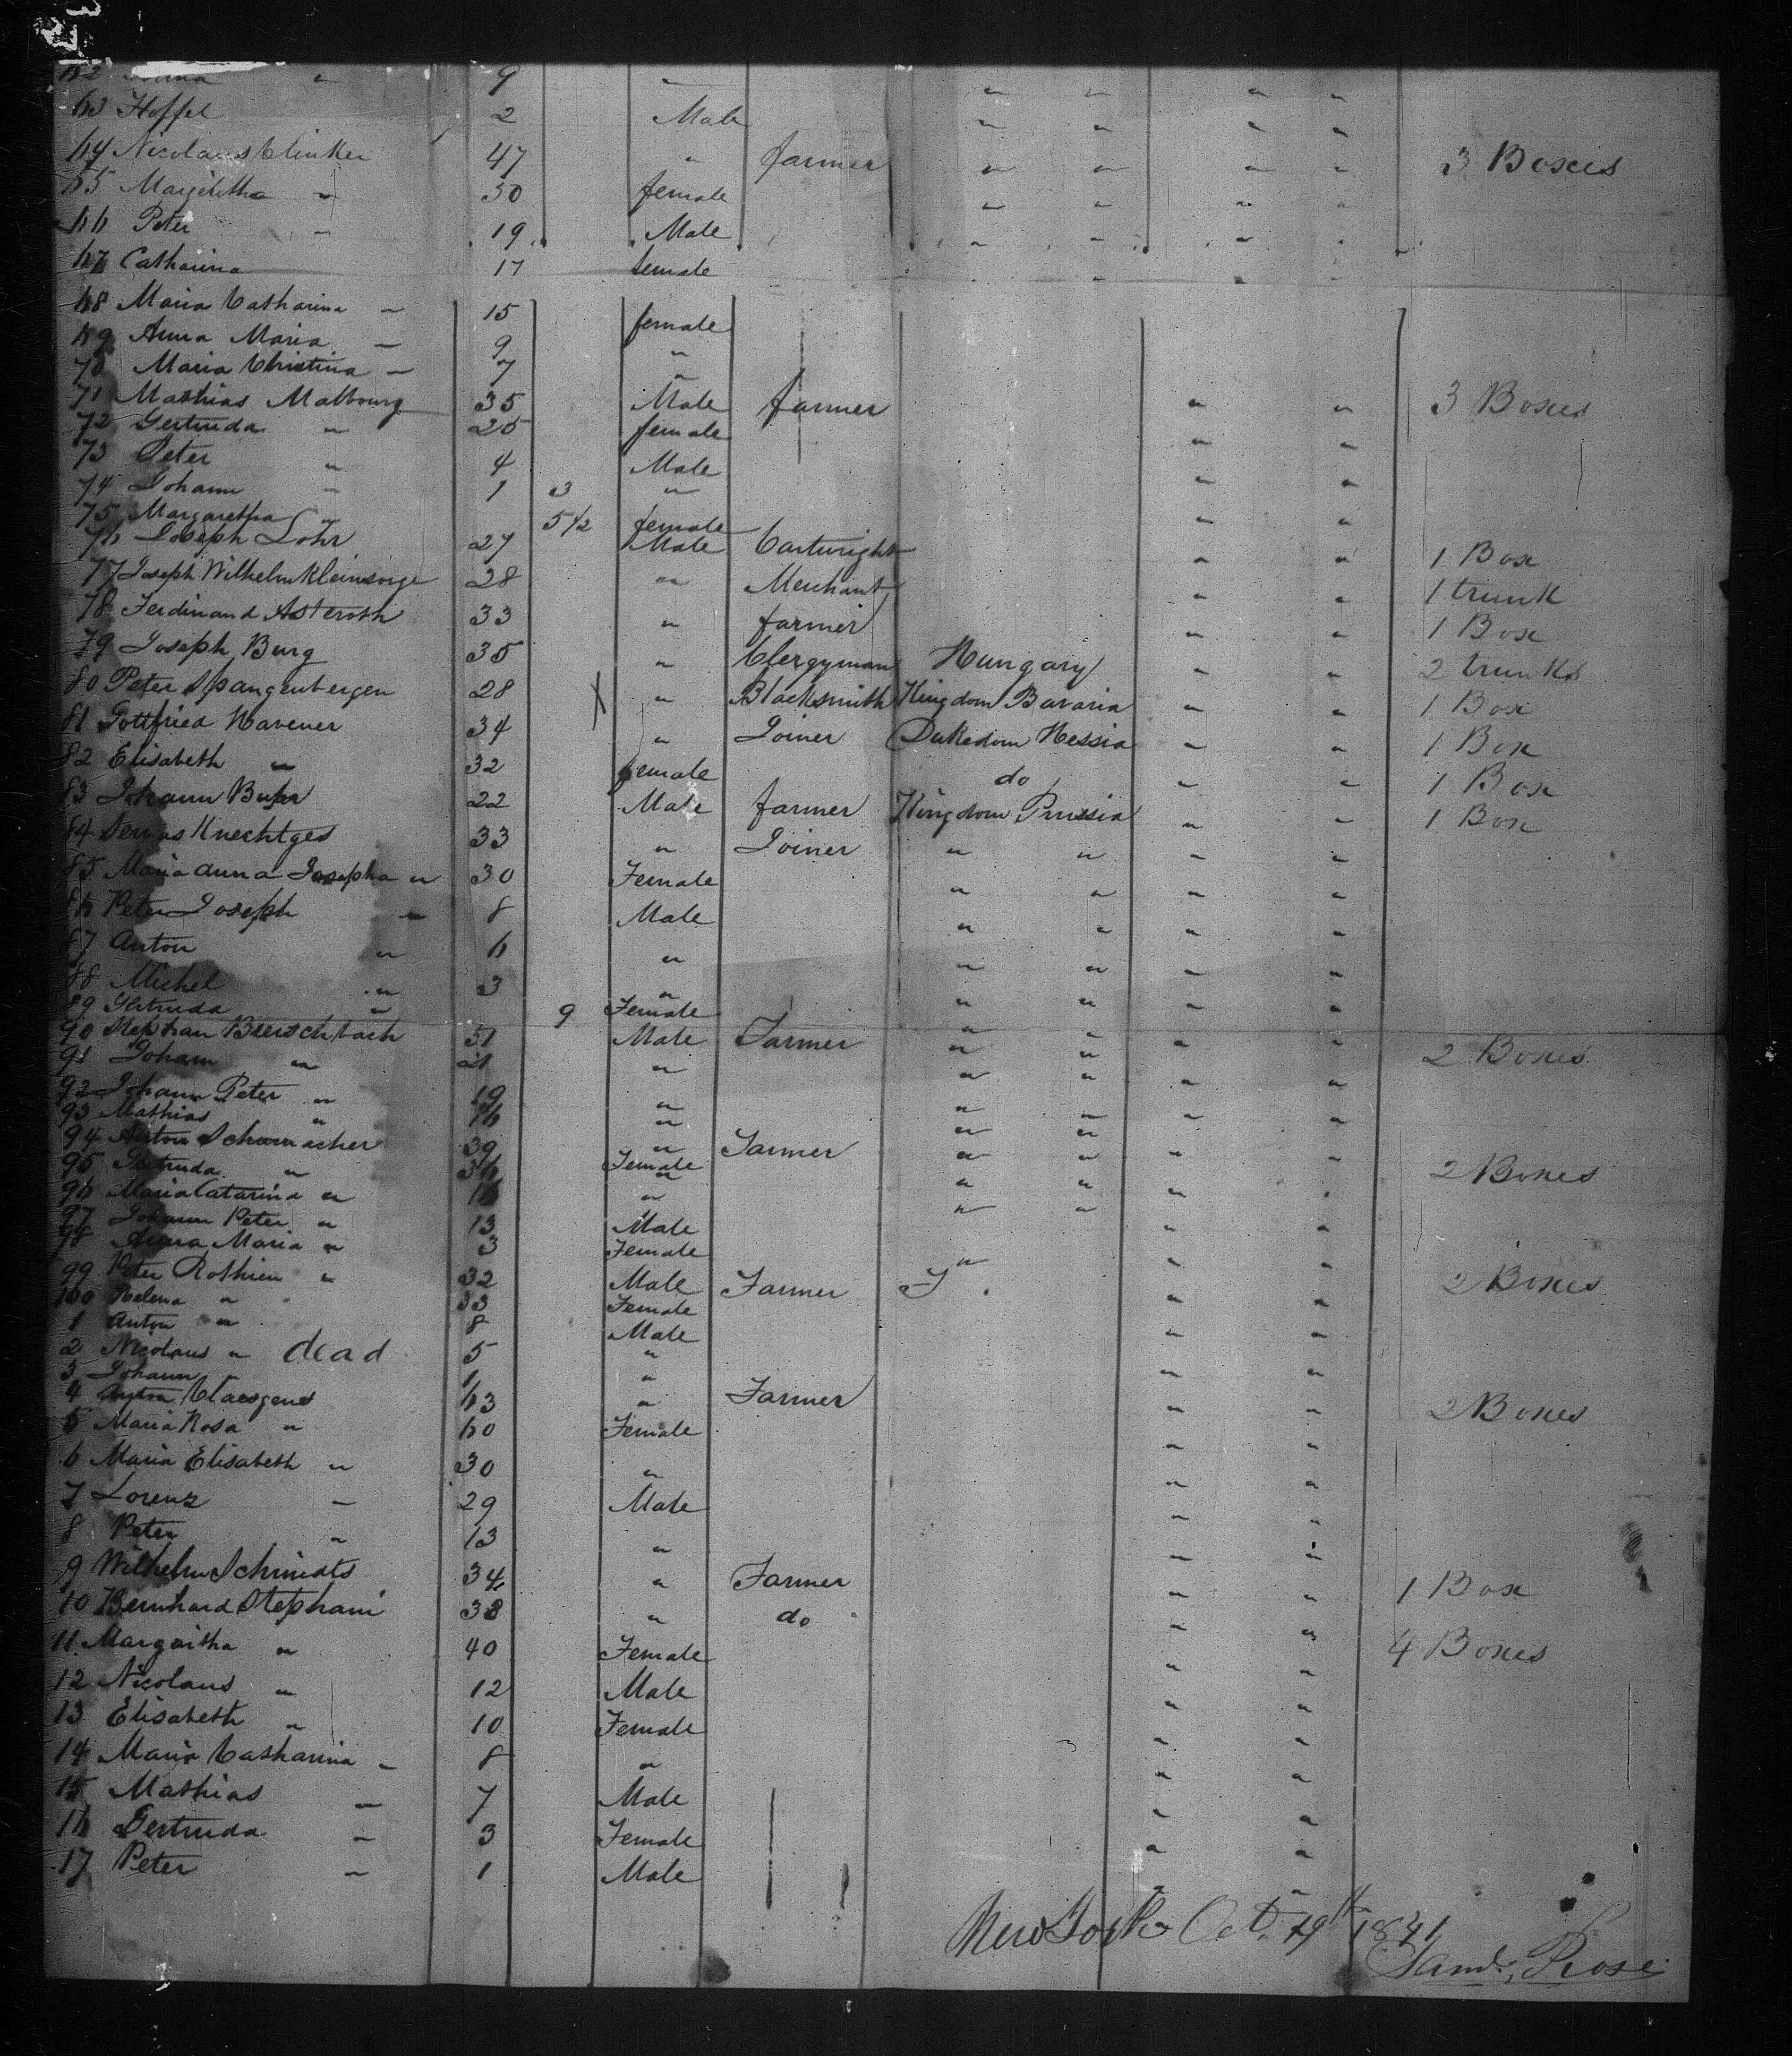 62 " 9 " " " " "
63 Hoffel 2 Male " " " "
64 Nicolaus Clinker 47 " farmer " " " " 3 Boxes
65 Margeletha " 50 female " " " "
66 Peter " 19 Male " " "
67 Catharina 17 female " " "
68 Maria Catharina " 15 female
69 Anna Maria " 9 "
70 Maria Christina " 7 "
71 Mathias Malbourg 35 Male farmer " " 3 Boxes
72 Gertruda " 25 female " "
73 Peter " 4 Male " "
74 Johann " 1 3 " " "
75 Margaretha " 5 1/2 female
76 Joseph Lohr 27 Male Cartwright " " 1 Box
77 Joseph Wilhelm Kleinsorge 28 " Merchant " " 1 trunk
78 Ferdinand Asteroth 33 " farmer " " 1 Box
79 Joseph Burg 35 " Clergyman Hungary " " 2 trunks
80 Peter Spangenbergen 28 X " Blacksmith Kingdom Bavaria " " 1 Box
81 Gottfried Havener 34 " Joiner Dukedom Hessia " " 1 Box
82 Elisabeth " 32 female do " " 1 Box
83 Johann Buhr 22 Male farmer Kingdom Prussia " " 1 Box
84 Knechtges 33 " Joiner " " " "
85 Maria Anna Josepha " 30 Female " " " "
86 Peter Joseph " 8 Male " " " "
87 Anton " 6 " " " " "
88 Michel " 3 " " " " "
89 Gertruda " 9 Female " " " "
90 Stephan Bierschbach 51 Male Farmer " " " " 2 Boxes
91 Johann " 21 " " " " "
92 Johann Peter " 19 " " " " "
93 Mathias " 16 " " "
94 Anton Schumacher 39 " Farmer " " " "
95 Gertruda " 36 Female " " " " 2 Boxes
96 Maria Catarina " 16 " " "
97 Johann Peter " 13 Male " "
98 Anna Maria " 3 Female " "
99 Peter Rothien " 32 Male Farmer " 2 Boxes
100 Helena " 33 Female " "
1 Anton " 8 Male " "
2 Nicolaus " dead 5 "
3 Johann " 1 " " "
4 Anton Claesgens 63 " Farmer " " 2 Boxes
5 Maria Rosa " 60 Female " "
6 Maria Elisabeth " 30 " " "
7 Lorenz " 29 Male " "
8 Peter " 13 " " "
9 Wilhelm Schmidts 34 " Farmer " " 1 Box
10 Bernhard Stephani 38 " do " "
11 Margaitha " 40 Female " " 4 Boxes
12 Nicolaus " 12 Male " "
13 Elisabeth " 10 Female " "
14 Maria Catharina " 8 " " "
15 Mathias " 7 Male " "
16 Gertruda " 3 Female " "
17 Peter " 1 Male " "
New York Oct. 19th 1841
Saml. Rose